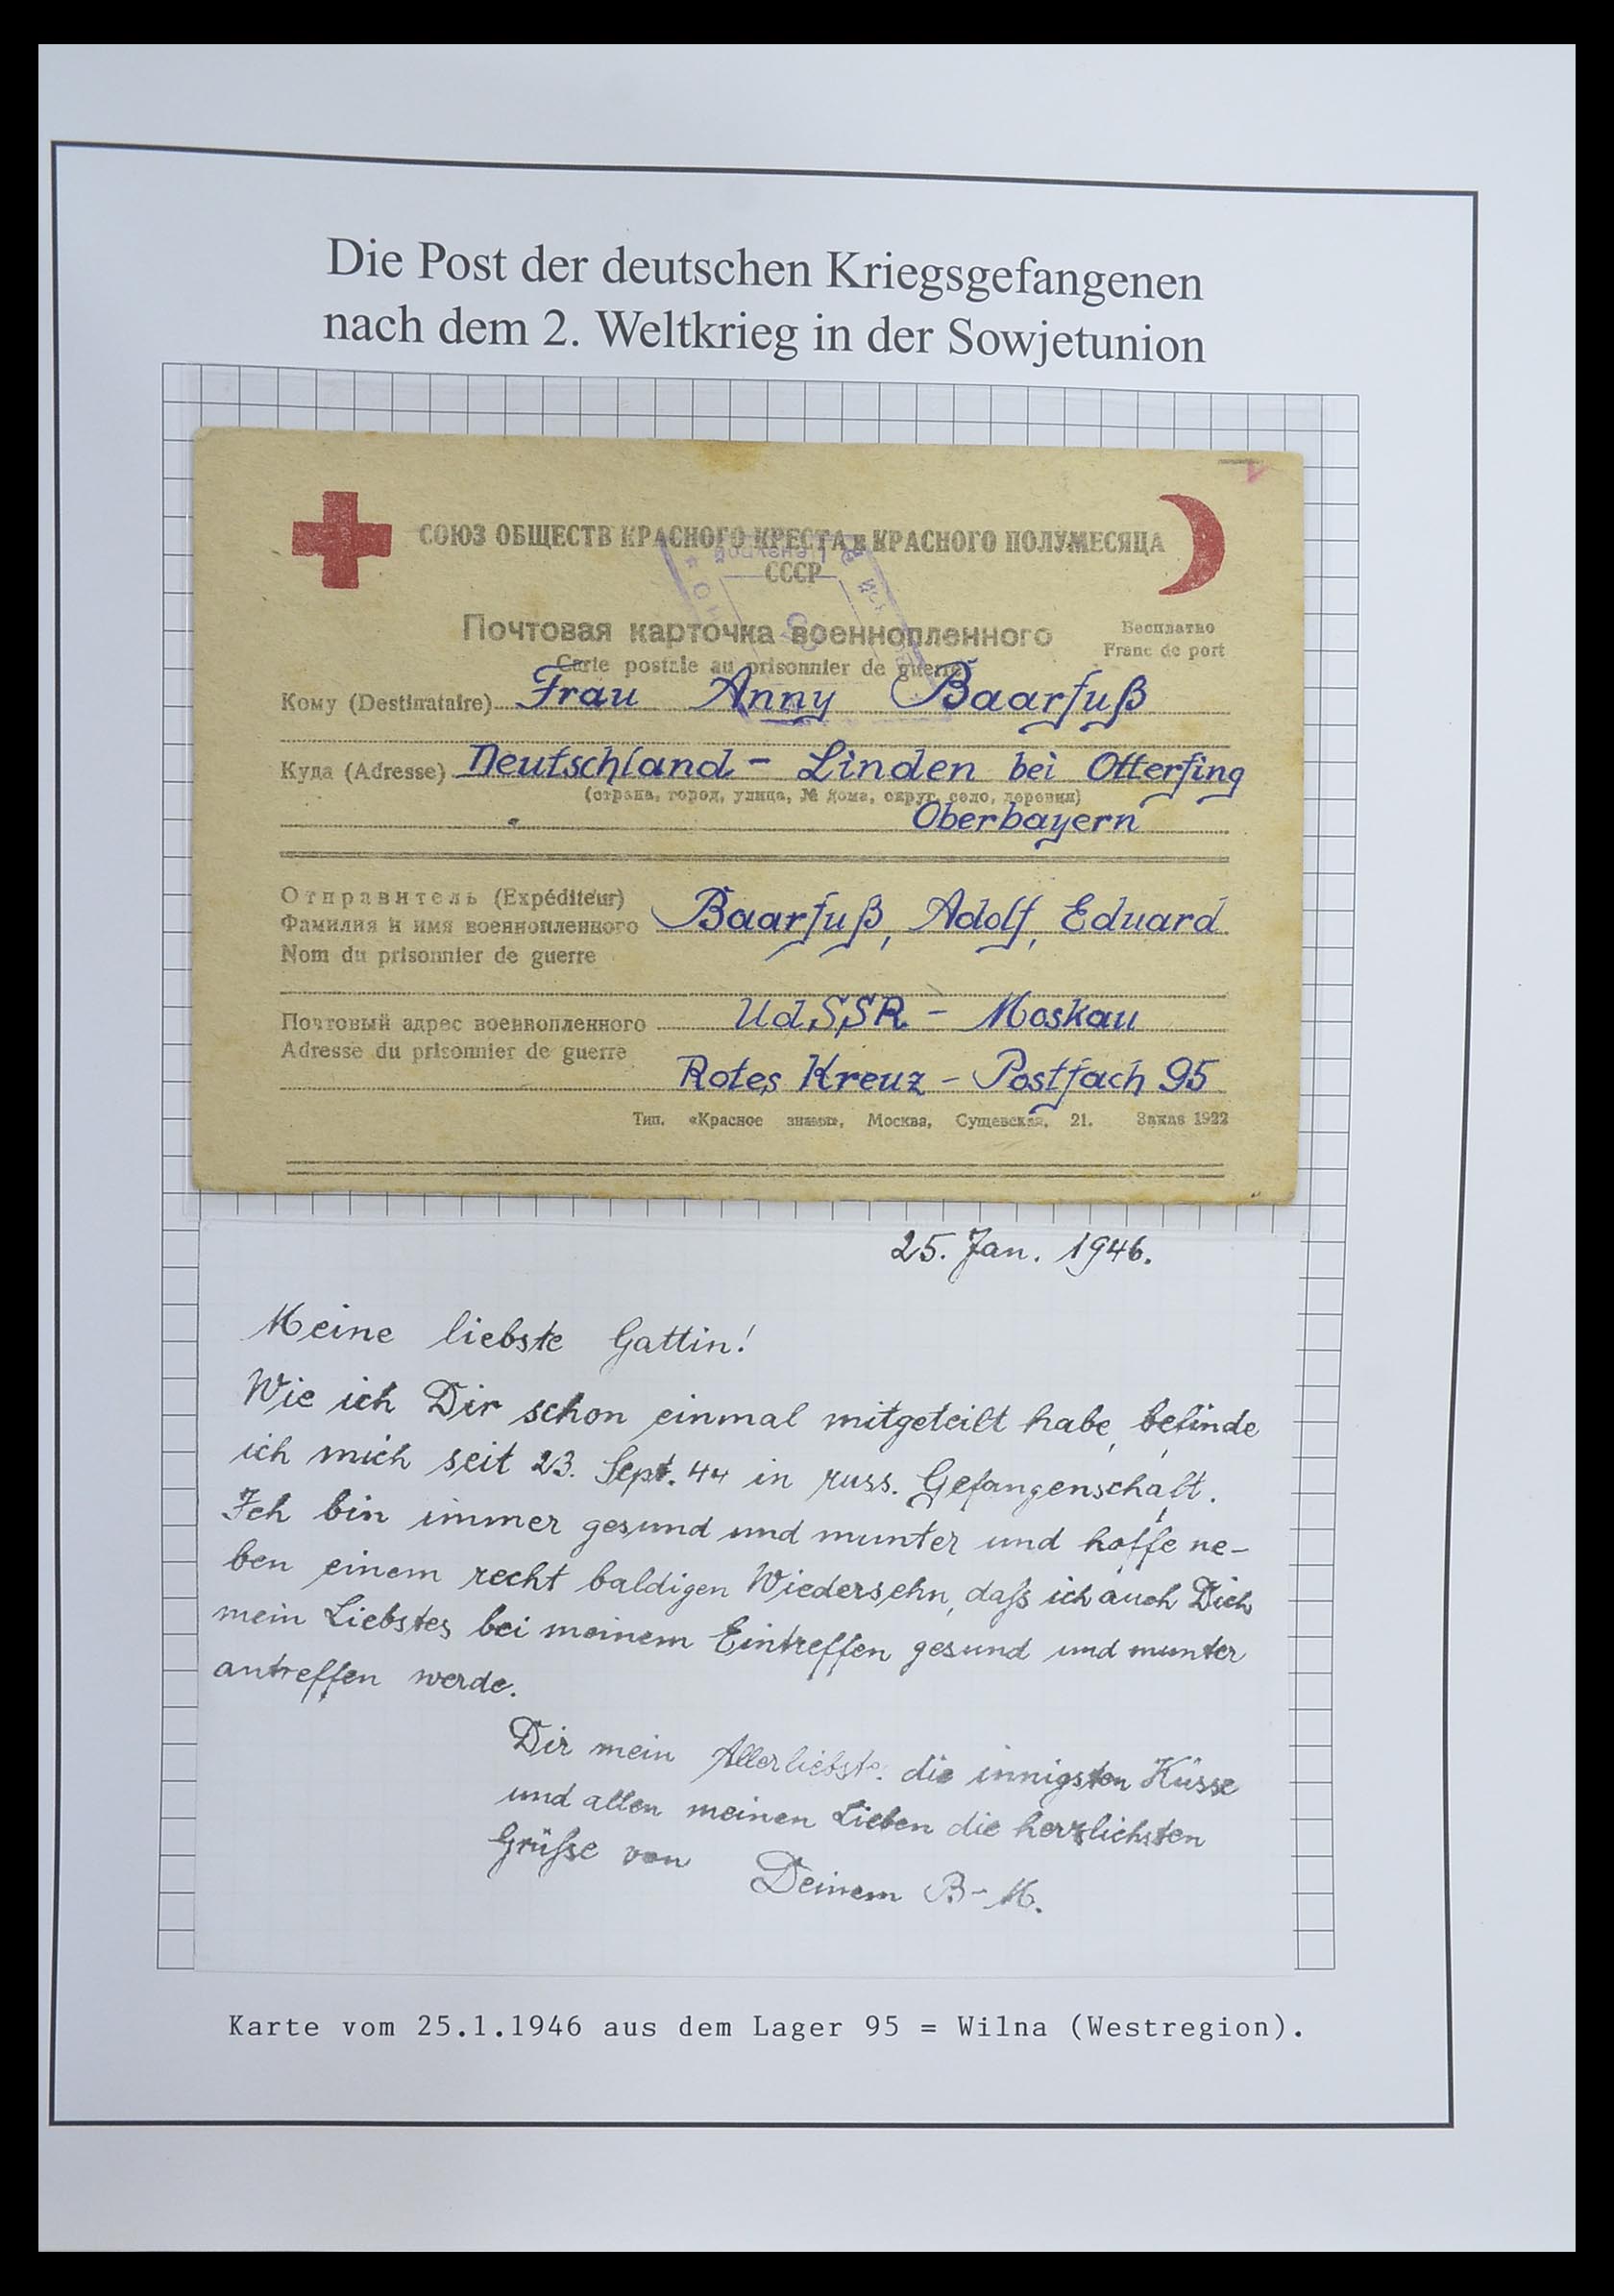 Die Post der deutschen Kriegsgefangenen
nach dem 2. Weltkrieg in der Sowjetunion
СОЮЗ ОБЩЕСТВ КРАСНОГО КРЕСТА и КРАСНОГО ПОЛУМЕСЯЦА
СССР
Почтовая карточка военнопленного
Бесплатно
Carte postale au prisonnier de guerre
Franc de port
Кому (Destinataire) Frau Anny Baarfuß
Куда (Adresse) Deutschland - Linden bei Otterfing
(страна, город, улица, № дома, округ, село, деревня)
Oberbayern
Отправитель (Expéditeur)
Фамилия и имя военнопленного Baarfuß, Adolf, Eduard
Nom du prisonnier de guerre
Почтовый адрес военнопленного UdSSR - Moskau
Adresse du prisonnier de guerre
Rotes Kreuz - Postfach 95
Тип. «Красное знамя», Москва, Сущевская, 21. Заказ 1922
25. Jan. 1946.
Meine liebste Gattin!
Wie ich Dir schon einmal mitgeteilt habe, befinde
ich mich seit 23. Sept. 44 in russ. Gefangenschaft.
Ich bin immer gesund und munter und hoffe ne-
ben einem recht baldigen Wiedersehn, daß ich auch Dich
mein Liebstes bei meinem Eintreffen gesund und munter
antreffen werde.
Dir mein Allerliebste die innigsten Küsse
und allen meinen Lieben die herzlichsten
Grüße von Deinem B-M.
Karte vom 25.1.1946 aus dem Lager 95 = Wilna (Westregion).